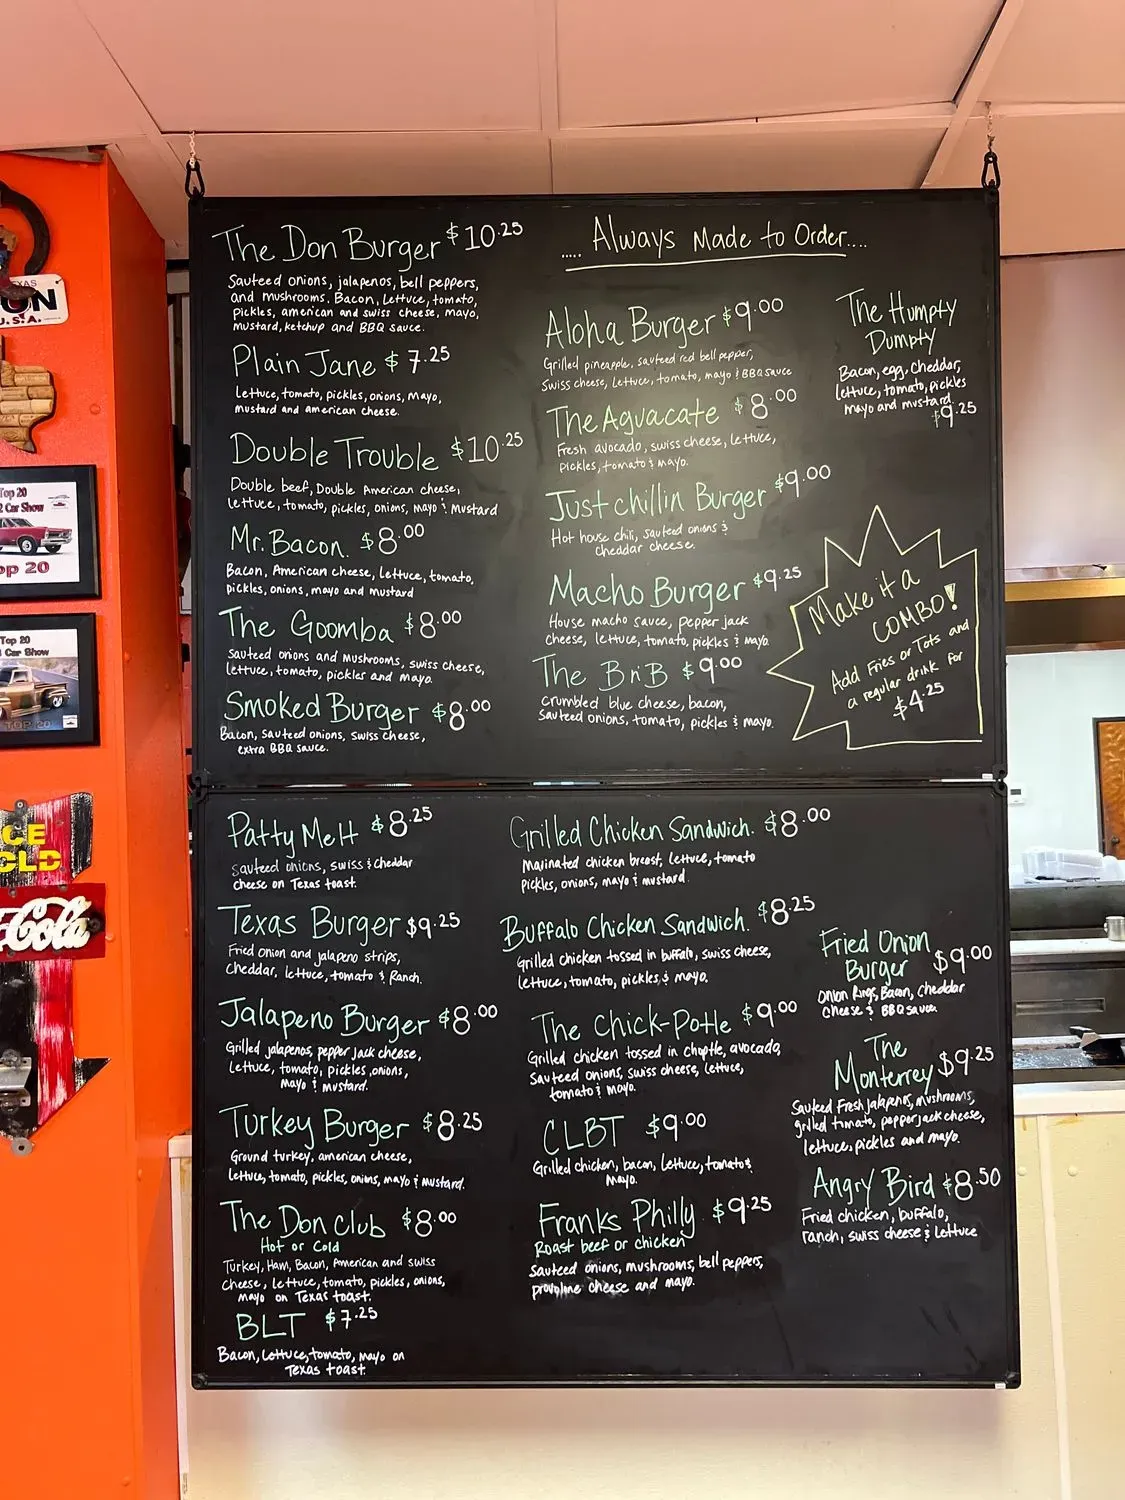 The Don Burger $10.25
Sauteed onions, jalapenos, bell peppers,
and mushrooms. Bacon, Lettuce, tomato,
pickles, american and swiss cheese, mayo,
mustard, ketchup and BBQ sauce.
Plain Jane $7.25
Lettuce, tomato, pickles, onions, mayo,
mustard and american cheese.
Double Trouble $10.25
Double beef, Double American cheese,
lettuce, tomato, pickles, onions, mayo & Mustard
Mr. Bacon. $8.00
Bacon, American cheese, Lettuce, tomato,
pickles, onions, mayo and mustard
The Goomba $8.00
Sauteed onions and mushrooms, swiss cheese,
lettuce, tomato, pickles and mayo.
Smoked Burger $8.00
Bacon, sauteed onions, swiss cheese,
extra BBQ sauce.
..... Always Made to Order....
Aloha Burger $9.00
Grilled pineapple, sauteed red bell pepper,
Swiss cheese, Lettuce, tomato, mayo & BBQ sauce
The Aguacate $8.00
Fresh avocado, swiss cheese, lettuce,
Pickles, tomato & mayo.
Just chillin Burger $9.00
Hot house chili, sauteed onions &
cheddar cheese.
Macho Burger $9.25
House macho sauce, pepper jack
cheese, lettuce, tomato, pickles & mayo
The BnB $9.00
Crumbled blue cheese, bacon,
Sauteed onions, tomato, pickles & mayo.
The Humpty
Dumpty
Bacon, egg, cheddar,
lettuce, tomato, pickles
mayo and mustard.
$9.25
Make it a
COMBO!
Add Fries or Tots and
a regular drink for
$4.25
Patty Melt $8.25
Sauteed onions, swiss & cheddar
cheese on Texas toast.
Texas Burger $9.25
Fried onion and jalapeno strips,
Cheddar, lettuce, tomato & Ranch.
Jalapeno Burger $8.00
Grilled jalapenos, pepper jack cheese,
Lettuce, tomato, pickles, onions,
mayo & mustard.
Turkey Burger $8.25
Ground turkey, american cheese,
lettuce, tomato, pickles, onions, mayo & mustard.
The Don Club $8.00
Hot or Cold
Turkey, Ham, Bacon, American and swiss
Cheese, Lettuce, tomato, pickles, onions,
mayo on Texas toast.
BLT $7.25
Bacon, Lettuce, tomato, mayo on
Texas toast.
Grilled Chicken Sandwich. $8.00
Marinated chicken breast, lettuce, tomato
pickles, onions, mayo & mustard.
Buffalo Chicken Sandwich. $8.25
Grilled chicken tossed in buffalo, swiss cheese,
lettuce, tomato, pickles & mayo.
The Chick-Potle $9.00
Grilled chicken tossed in chaptle, avocado,
Sauteed onions, swiss cheese, lettuce,
tomato & mayo.
CLBT $9.00
Grilled chicken, bacon, Lettuce, tomato &
mayo.
Franks Philly $9.25
Roast beef or chicken
Sauteed onions, mushrooms, bell peppers,
provolone cheese and mayo.
Fried Onion
Burger $9.00
Onion Rings, Bacon, Cheddar
Cheese & BBQ sauce
The
Monterrey $9.25
Sauteed Fresh jalapenos, mushrooms,
grilled tomato, pepperjack cheese,
lettuce, pickles and mayo.
Angry Bird $8.50
Fried chicken, buffalo,
ranch, swiss cheese & Lettuce
U.S.A.
Top 20
Car Show
op 20
Top 20
Car Show
TOP 20
CE
CLD
Cola